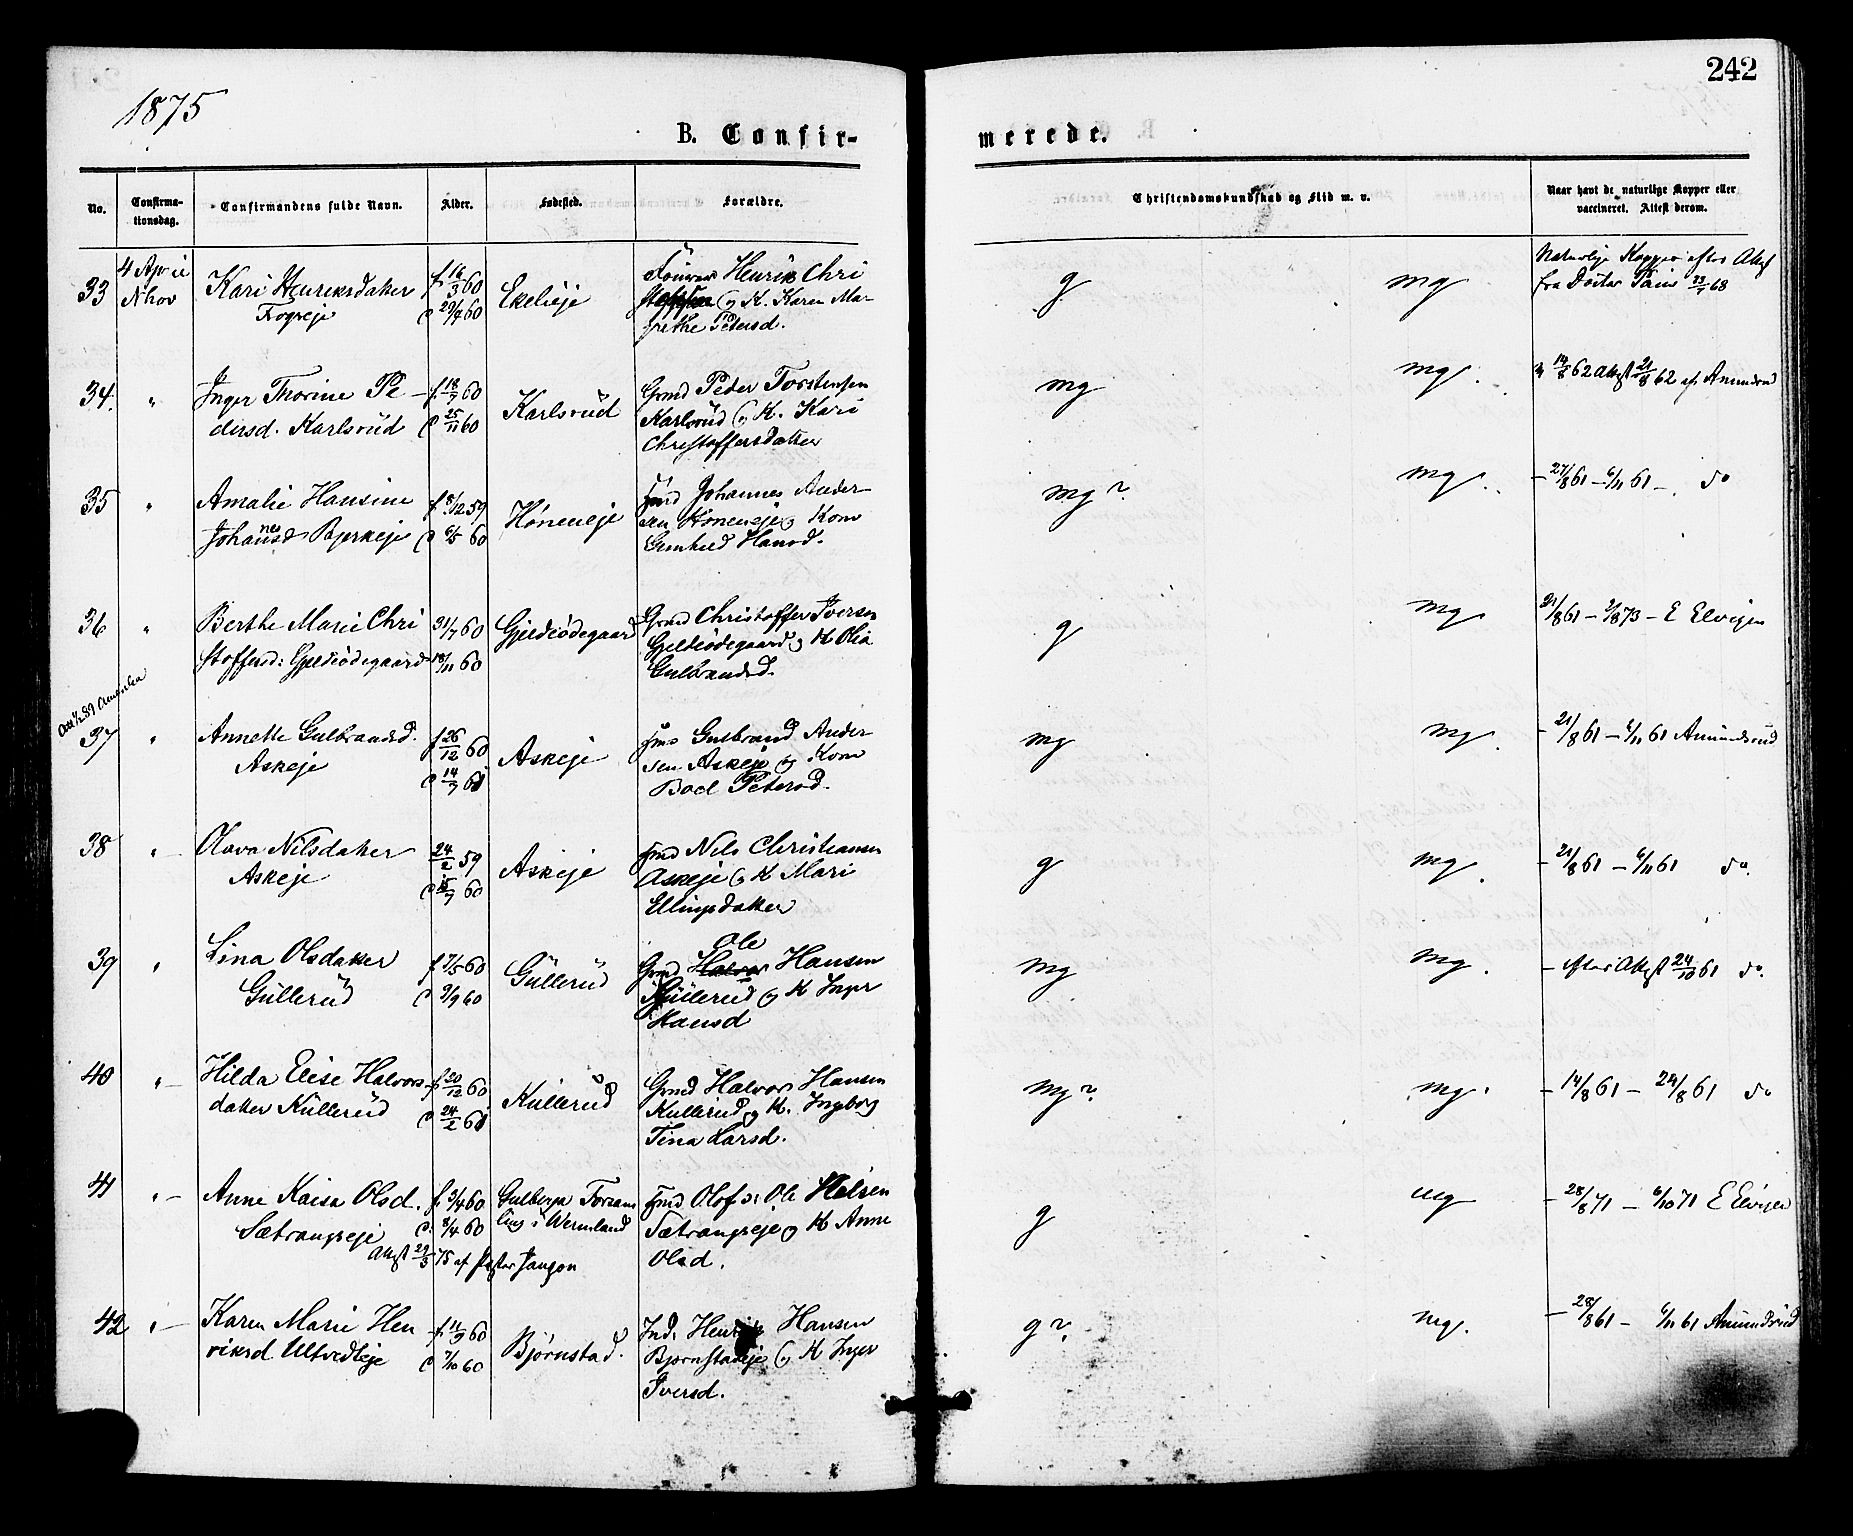 242
1875
B. Confir-
merede.
No.
Confirma-
tionsdag.
Confirmandens fulde Navn.
Alder.
Fødested.
Forældre.
Christendomskundskab og Flid m. v.
Naar havt de naturlige Kopper eller
vaccineret. Attest derom.
33
4 April
N hov
Kari Henriksdatter
Frogeje
f. 16/3 60
d 29/4 60
Ekelieje
Henrik Chri
stoffersen og K. Karen Mar-
grethe Petersd.
g
mg
Naturlige Kopper efter Attest
fra Doctor 23/7 68
34.
"
Inger Thorine Pe-
dersd. Karlsrud
f. 18/9 60
d 25/11 60
Karlsrud
Grmd Peder Torstensen
Karlsrud og K. Kari
Christoffersdatter
mg
mg.
14/8 62 Attest 21/8 62 af Amundrud
35
"
Amalie Hansine
Johannesd Bjerkeje
f. 8/12 59
d 6/5 60
Høneneje
Hmd Johannes Ander-
sen Høneneje og Kone
Gunhild Hansd.
mg?
mg.
- 27/8 61 - 6/11 61 - do
36
"
Berthe Marie Chri
stoffersd: Gjeldiødegaard
31/7 60
18/11 60
Gjeldiødegaard
Grmd Christoffer Iversen
Gjeldiødegaard og K Olia
Gulbrandsd.
g
mg
21/8 61 - 2/8 73 - E Elvigen
Att 1/2 89 Amerika
37
"
Annette Gulbrandsd.
Askeje
f 26/12 60
d 14/7 61
Askeje
Hmd Gulbrand Ander
sen Askeje og Kone
Boel Petersd.
mg
mg.
- 21/8 61 - 6/11 61 Amundsrud
38
"
Olava Nilsdatter
Askeje
24/2 59
d 15/7 60
Askeje
Hmd Nils Christiansen
Askeje og K Mari
Ellingsdatter
g
mg.
- 21/8 61 - 6/11 61 do.
39
"
Lina Olsdatter
Gullerud
f 7/5 60
d 9/9 60
Gullerud
Ole
Grmd Halvor Hansen
Gullerud og K Inger
Hansd
mg
mg.
- efter Attest 24/10 61 do.
40
"
Hilda Elise Halvors-
datter Kullerud
f. 20/12 60
d. 24/2 61
Kullerud
Grmd Halvor Hansen
Kullerud og K. Ingborg
Tina Larsd.
mg?
mg.
- 14/8 61 - 24/8 61 do
41
"
Anne Kaisa Olsd.
Sætrangseje
f. 3/4 60
d. 8/4 60
Gulbergs Forsam
ling i Wermland
Attest 29/3 75 af Pastor
Hmd Olof d: Ole Nelsen
Sætrangseje og K Anne
Olsd.
g
mg
- 28/8 71 - 6/10 71 E Elvigen
42
"
Karen Marie Hen
riksd Ultvedteje
f. 11/9 60
d 7/10 60
Bjørnstad.
Ind: Henrik Hansen
Bjørnstadeje og K Inger
Iversd.
g?
mg.
- 28/8 61 - 6/11 61 Amundsrud